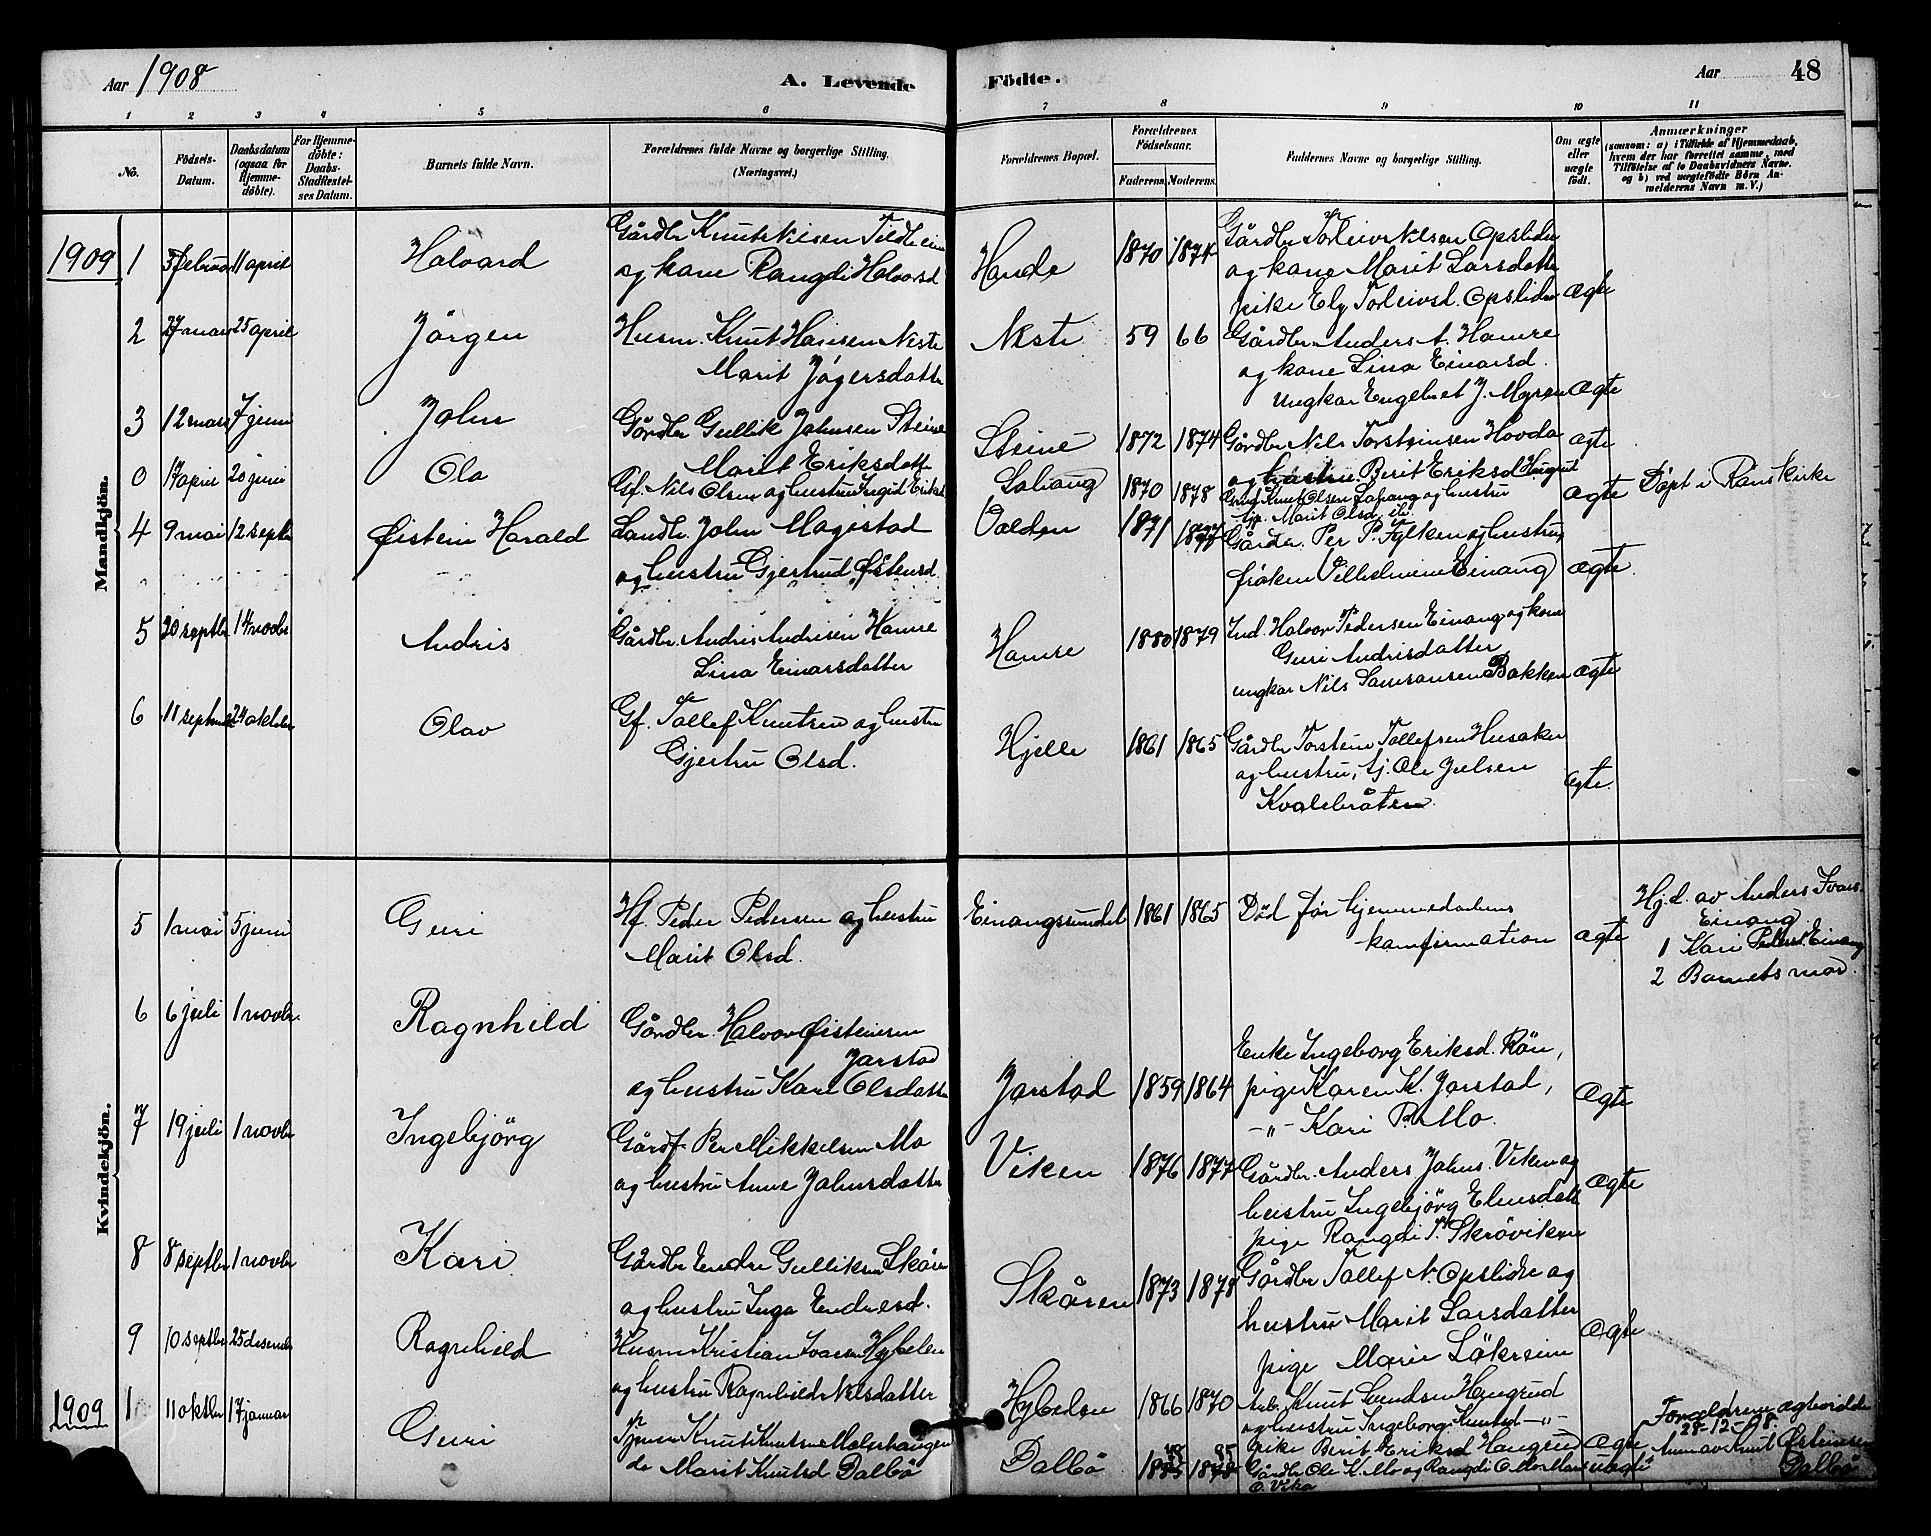 Aar 1908
A. Levende
Födte.
Aar
48
1 2 3 4 5 6 7 8 9 10 11
No.
Födsels-Datum.
Daabsdatum (ogsaa for Hjemmedöbte).
For Hjemmedöbte: Daabs-Stadfæstelses Datum.
Barnets fulde Navn.
Forældrenes fulde Navne og borgerlige Stilling. (Næringsvei.)
Forældrenes Bopæl.
Forældrenes Födselsaar.
Faderens. Moderens.
Faddernes Navne og borgerlige Stilling.
Om ægte eller uægte födt.
Anmærkninger
(saasom: a) i Tilfælde af Hjemmedaab, hvem der har forrettet samme, med Tilföielse af to Daabsvidners Navne, og b) ved uægtefödte Börn Anmelderens Navn m. V.)
Mandkjön.
1909 1 5 februar 11 april Halvard
Gårdbr Knut Nilsen
og kone Rangdi Halvorsd
Hande 1870 1874
Gårdbr Torleiv Nilsen Opslidn
og kone Marit Larsdatter
pike Ely Torleivsd. Opslidn ægte
2 27 mars 25 april Jörgen
Husm. Knut Hansen Neste
Marit Jögersdatter
Neste 59 66
Gårdbr Anders A. Hamre
og kone Lina Einarsd.
Ungkar Engebret J. Myren ægte
3 12 mars 7 juni John
Gårdbr Gullik Johnsen Steine
Marit Eriksdatte
Steine 1872 1874
Gårdbr Nils Torsteinsen Hovda ægte
og hustru Berit Eriksd
0 17 april 20 juni Ola
Gf. Nils Olsen og hustru Ingrid Eriksd
1870 1878
Knut Olsen og hustru
Marit Olsd.
ægte Döpt i Rønskirke
4 9 mai 12 septbr Øistein Harald
Landh. John Magistad
og hustru Gjertrud Østensd.
Volden 1871 1877
Gårdbr. Per P. Fylken og hustru,
fröken Vilhelmine Einang ægte.
5 20 septbr 14 novbr Andris
Gårdbr. Andris Andrisen Hamre
Lina Einarsdatter
Hamre 1880 1879
Ind. Halvor Pedersen Einang og kone
Guri Andrisdatter
ungkar Nils Samsonsen Bakken ægte
6 11 septembr 24 oktober Olav
Gf. Tollef Knutsen og hustru
Gjertru Olsd.
Hjelle 1861 1865
Gårdbr Torstein Tollefsen Husaker
og hustru, tj. Ole Julsen
Kvalebråten. ægte.
Kvindekjön.
5 1 mai 5 juni Guri
Hf. Peder Pedersen og hustru
Marit Olsd.
Einangsundet 1861 1865
Död för hjemmedaabens
konfirmation ægte
Hj.d. av Anders Ivars.
Einang
1 Kari Pedersd. Einang
2 Barnets mor.
6 6 juli 1 novbr. Ragnhild
Gårdbr. Halvor Østeinsen
Jarstad
og hustru Kari Olsdatter
Jarstad 1859 1864
Enke Ingeborg Eriksd. Rön,
pige Karen K. Jarstad,
-"- Kari P. Mo. ægte
7 19 juli 1 novbr Ingebjörg
Gårdf. Per Mikkelsen Mo
og hustru Anne Johnsdatter
Viken 1876 1877
Gårdbr. Anders Johns. Viken og
hustru Ingebjörg Elensdatt
pige Rangdi T. Skröviken ægte
8 8 septbr 1 novbr Kari
Gårdbr Endre Gulliksen Skåren
og hustru Inga Endresd.
Skåren 1873 1878
Gårdbr Tollef N. Opslidn og
hustru Marit Larsdatter
pige Marie Lökreim ægte
9 10 septbr 25 desember Ragnhild
Husm Kristian Ivarsen Hybelen
og hustru Ragnhild Nilsdatter
Hybelen 1866 1870
Arb. Knut Hangrud
og hustru Ingeborg Knutsd -"-
pike Berit Eriksd Hangrud ægte
1909 1 11 oktbr 17 januar Guri
Knut Knutsen
Marit Knutsd Dalbö
Dalbö 1885 1878 85
Gårdbr Ole K. Mo og Rangdi O. Mo
O. Vika
uægte
Forældrene egteviede
28-12-08.
Anm av Knut Østeinsen
Dalbö